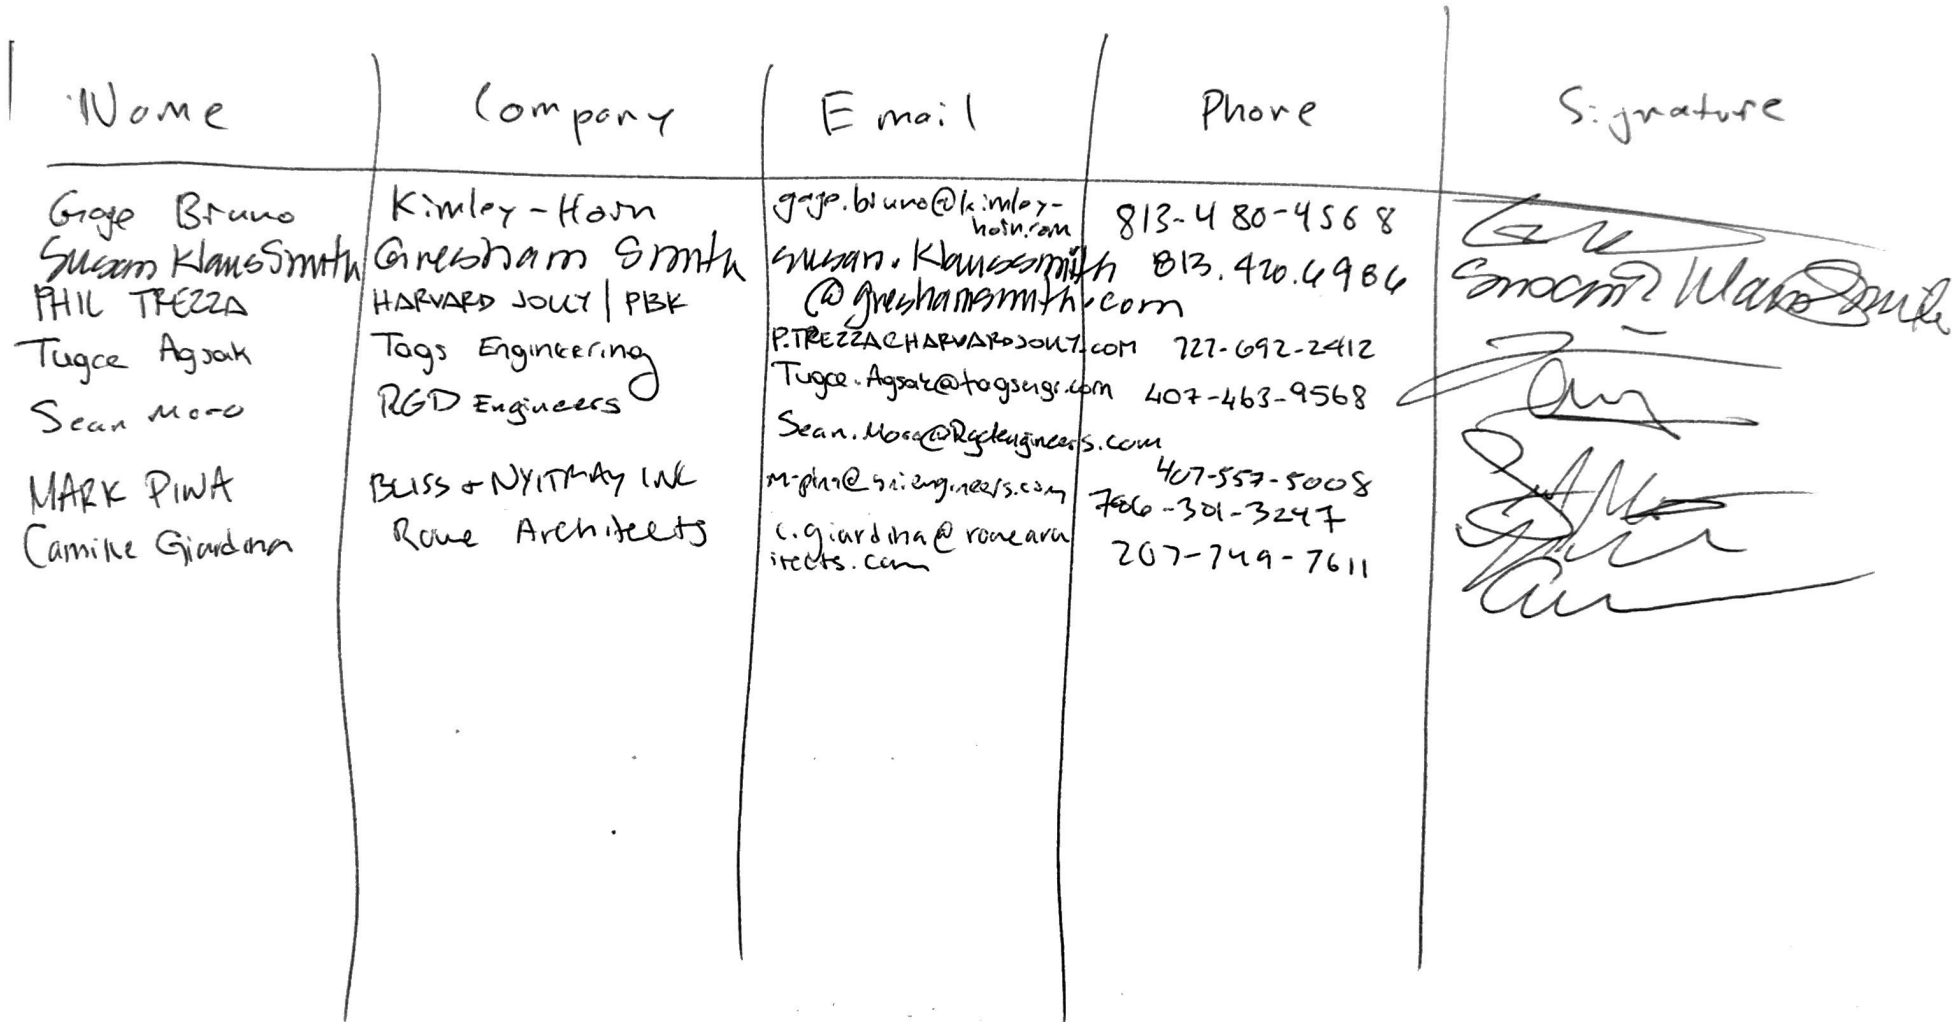 Name Company Email Phone Signature
Gage Bruno Kimley-Horn gage.bruno@kimley-horn.com 813-480-4568
Susan KlausSmith Gresham Smith susan.klaussmith@greshamsmith.com 813.420.6986
PHIL TREZZA HARVARD JOLLY | PBK P.TREZZA@HARVARDJOLLY.COM 727-692-2412
Tugce Agsak Tags Engineering Tugce.Agsak@tagsengr.com 407-463-9568
Sean RGD Engineers 407-557-5008
MARK PINA BLISS & NYITRAY INC 786-301-3247
Camille Giardina Rowe Architects c.giardina@rowearchitects.com 207-749-7611